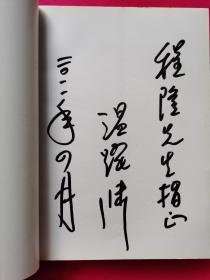 程隆先生指正
温跃渊
二〇一一年四月